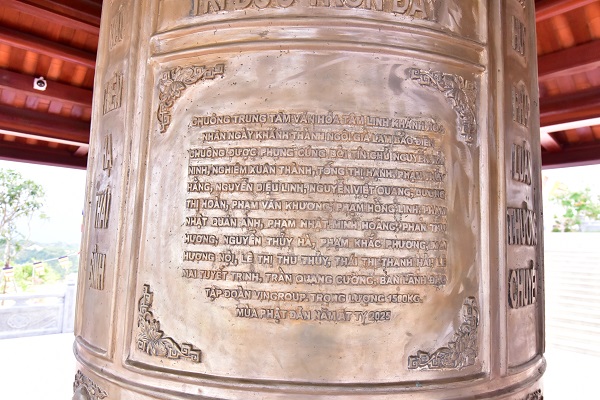 TRÍ ĐỨC TRÒN ĐẦY
CHUÔNG TRUNG TÂM VĂN HÓA TÂM LINH KHÁNH
NHÂN NGÀY KHÁNH THÀNH NGÔI GIÀ LAM BẢO ĐIỆN
CHUÔNG ĐƯỢC PHỤNG CÚNG BỞI TÍN CHỦ NGUYỄN
NINH, NGHIÊM XUÂN THÀNH, TỐNG THỊ HẠNH, PHẠM
HẰNG, NGUYỄN DIỆU LINH, NGUYỄN VIỆT QUANG, DƯƠNG
THỊ HOÀN, PHẠM VĂN KHƯƠNG, PHẠM HỒNG LINH, PHẠM
NHẬT QUÂN ANH, PHẠM NHẬT MINH HOÀNG, PHAN THU
HƯƠNG, NGUYỄN THÚY HÀ, PHẠM KHẮC PHƯƠNG,
HƯƠNG NỘI, LÊ THỊ THU THỦY, THÁI THỊ THANH HẢI, LÊ
MAI TUYẾT TRINH, TRẦN QUANG CƯỜNG, BAN LÃNH ĐẠO
TẬP ĐOÀN VINGROUP. TRỌNG LƯỢNG 1580KG.
MÙA PHẬT ĐẢN NĂM ẤT TỴ 2025
THÁI
BÌNH
THƯỜNG
CHUYỂN